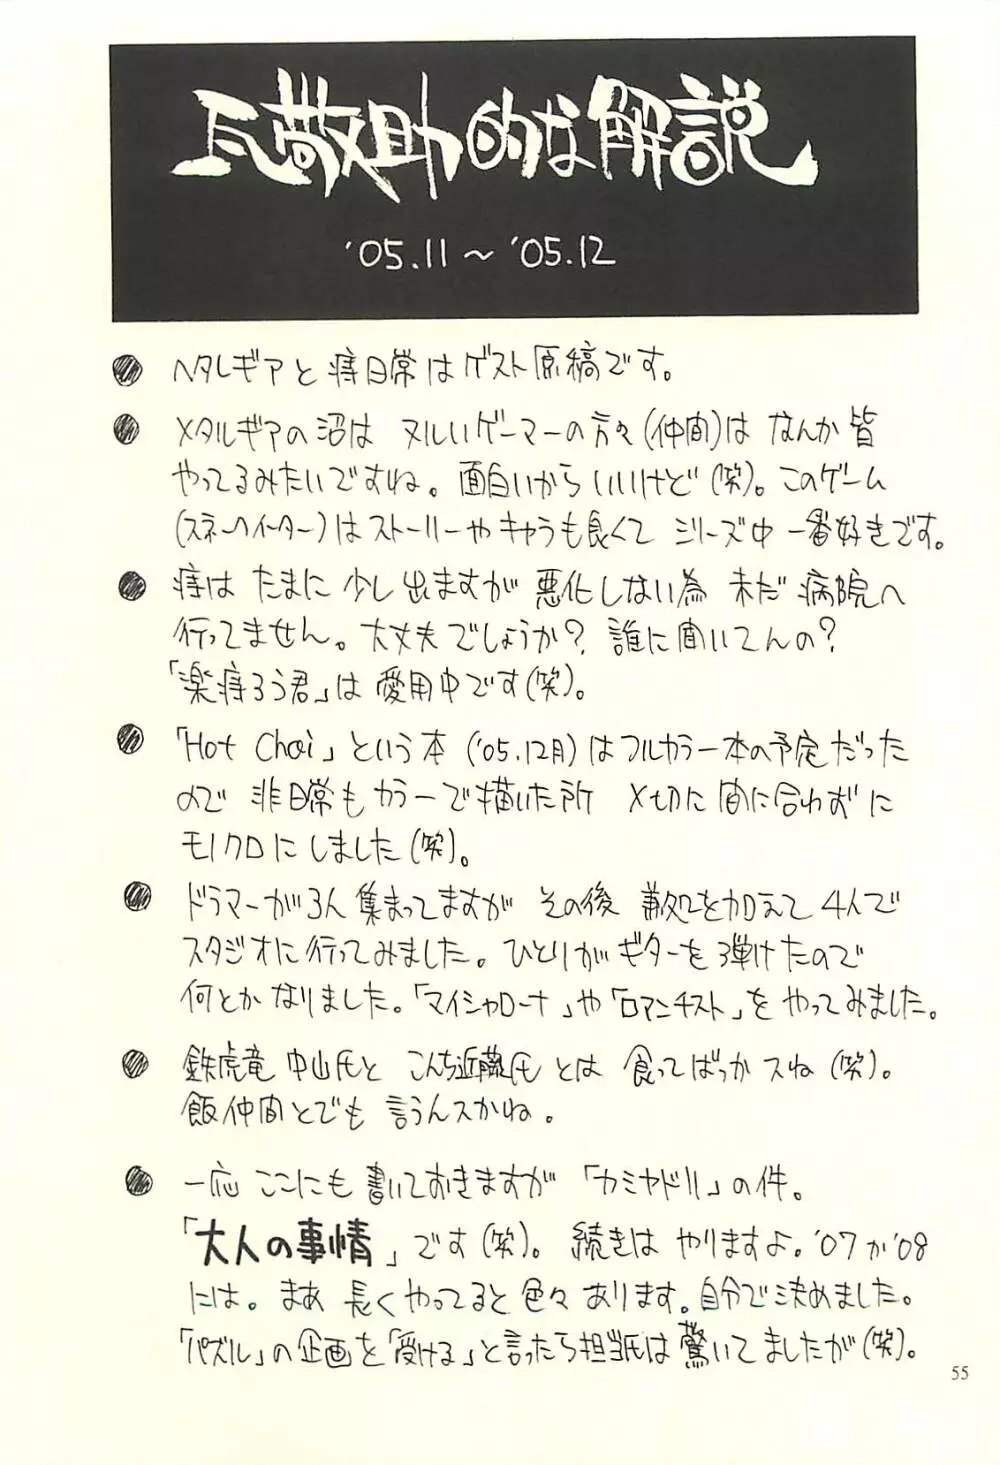 瓦敬助的な解説
'05.11～'05.12
● ヘタレギアと痔日常はゲスト原稿です。
● メタルギアの沼は ヌルいゲーマーの方々(仲間)は なんか皆
やってるみたいですね。面白いからいいけど(笑)。このゲーム
(スネークイーター)はストーリーやキャラも良くて シリーズ中 一番好きです。
● 痔は たまに 少し出ますが 悪化しない為 未だ 病院へ
行ってません。大丈夫でしょうか? 誰に聞いてんの?
「楽痔ろう君」は 愛用中です(笑)。
● 「Hot Choi」という本('05.12月)はフルカラー本の予定だった
ので 非日常もカラーで描いた所 〆切に間に合わずに
モノクロにしました(笑)。
● ドラマーが3人集まってますが その後 兼処を加えて4人で
スタジオに行ってみました。ひとりがギターを弾けたので
何とかなりました。「マイシャローナ」や「ロマンチスト」をやってみました。
● 鉄虎竜 中山氏と こんち近藤氏 とは 食ってばっかスね(笑)。
飯仲間とでも 言うんスかね。
● 一応 ここにも書いておきますが 「カミヤドリ」の件。
「大人の事情」です(笑)。続きは やりますよ。'07か'08
には。まあ 長くやってると色々あります。自分で決めました。
「パズル」の企画を「受ける」と言ったら担当氏は驚いてましたが(笑)。
55